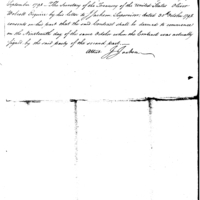 September 1798 - The Secretary of the Treasury of the United States Oliver
Wolcott Esquire by his letter to J Jackson Supervisor dated 31st October 1798
consents on his part that the said Contract shall be deemed to commence
on the Nineteenth day of the same October when the Contract was actually
signed by the said party of the second part
Attest J. Jackson